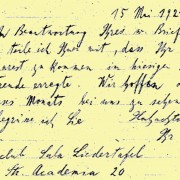 15 Mai 192
Beantwortung Ihres w. Brief
teile ich Ihnen mit, dass Ihr
zu kommen in hiesigen
erregte. Wir hoffen
Monats bei uns zu sehen
Sie Hochachtu
Lala Liedertafel
Str. Academia 20